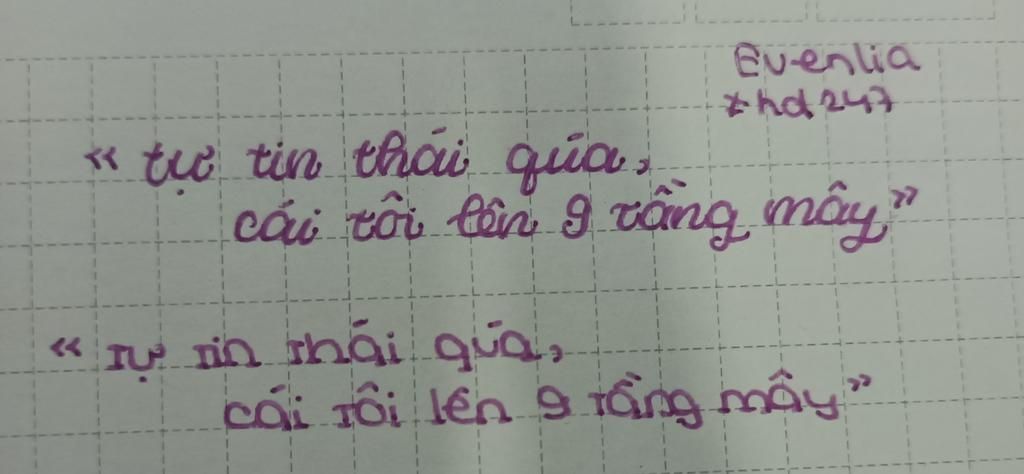 Evenlia
*hd247
“ tự tin thái qúa,
cái tôi lên 9 tầng mây”
“ Tự tin thái qúa,
cái tôi lên 9 tầng mây”